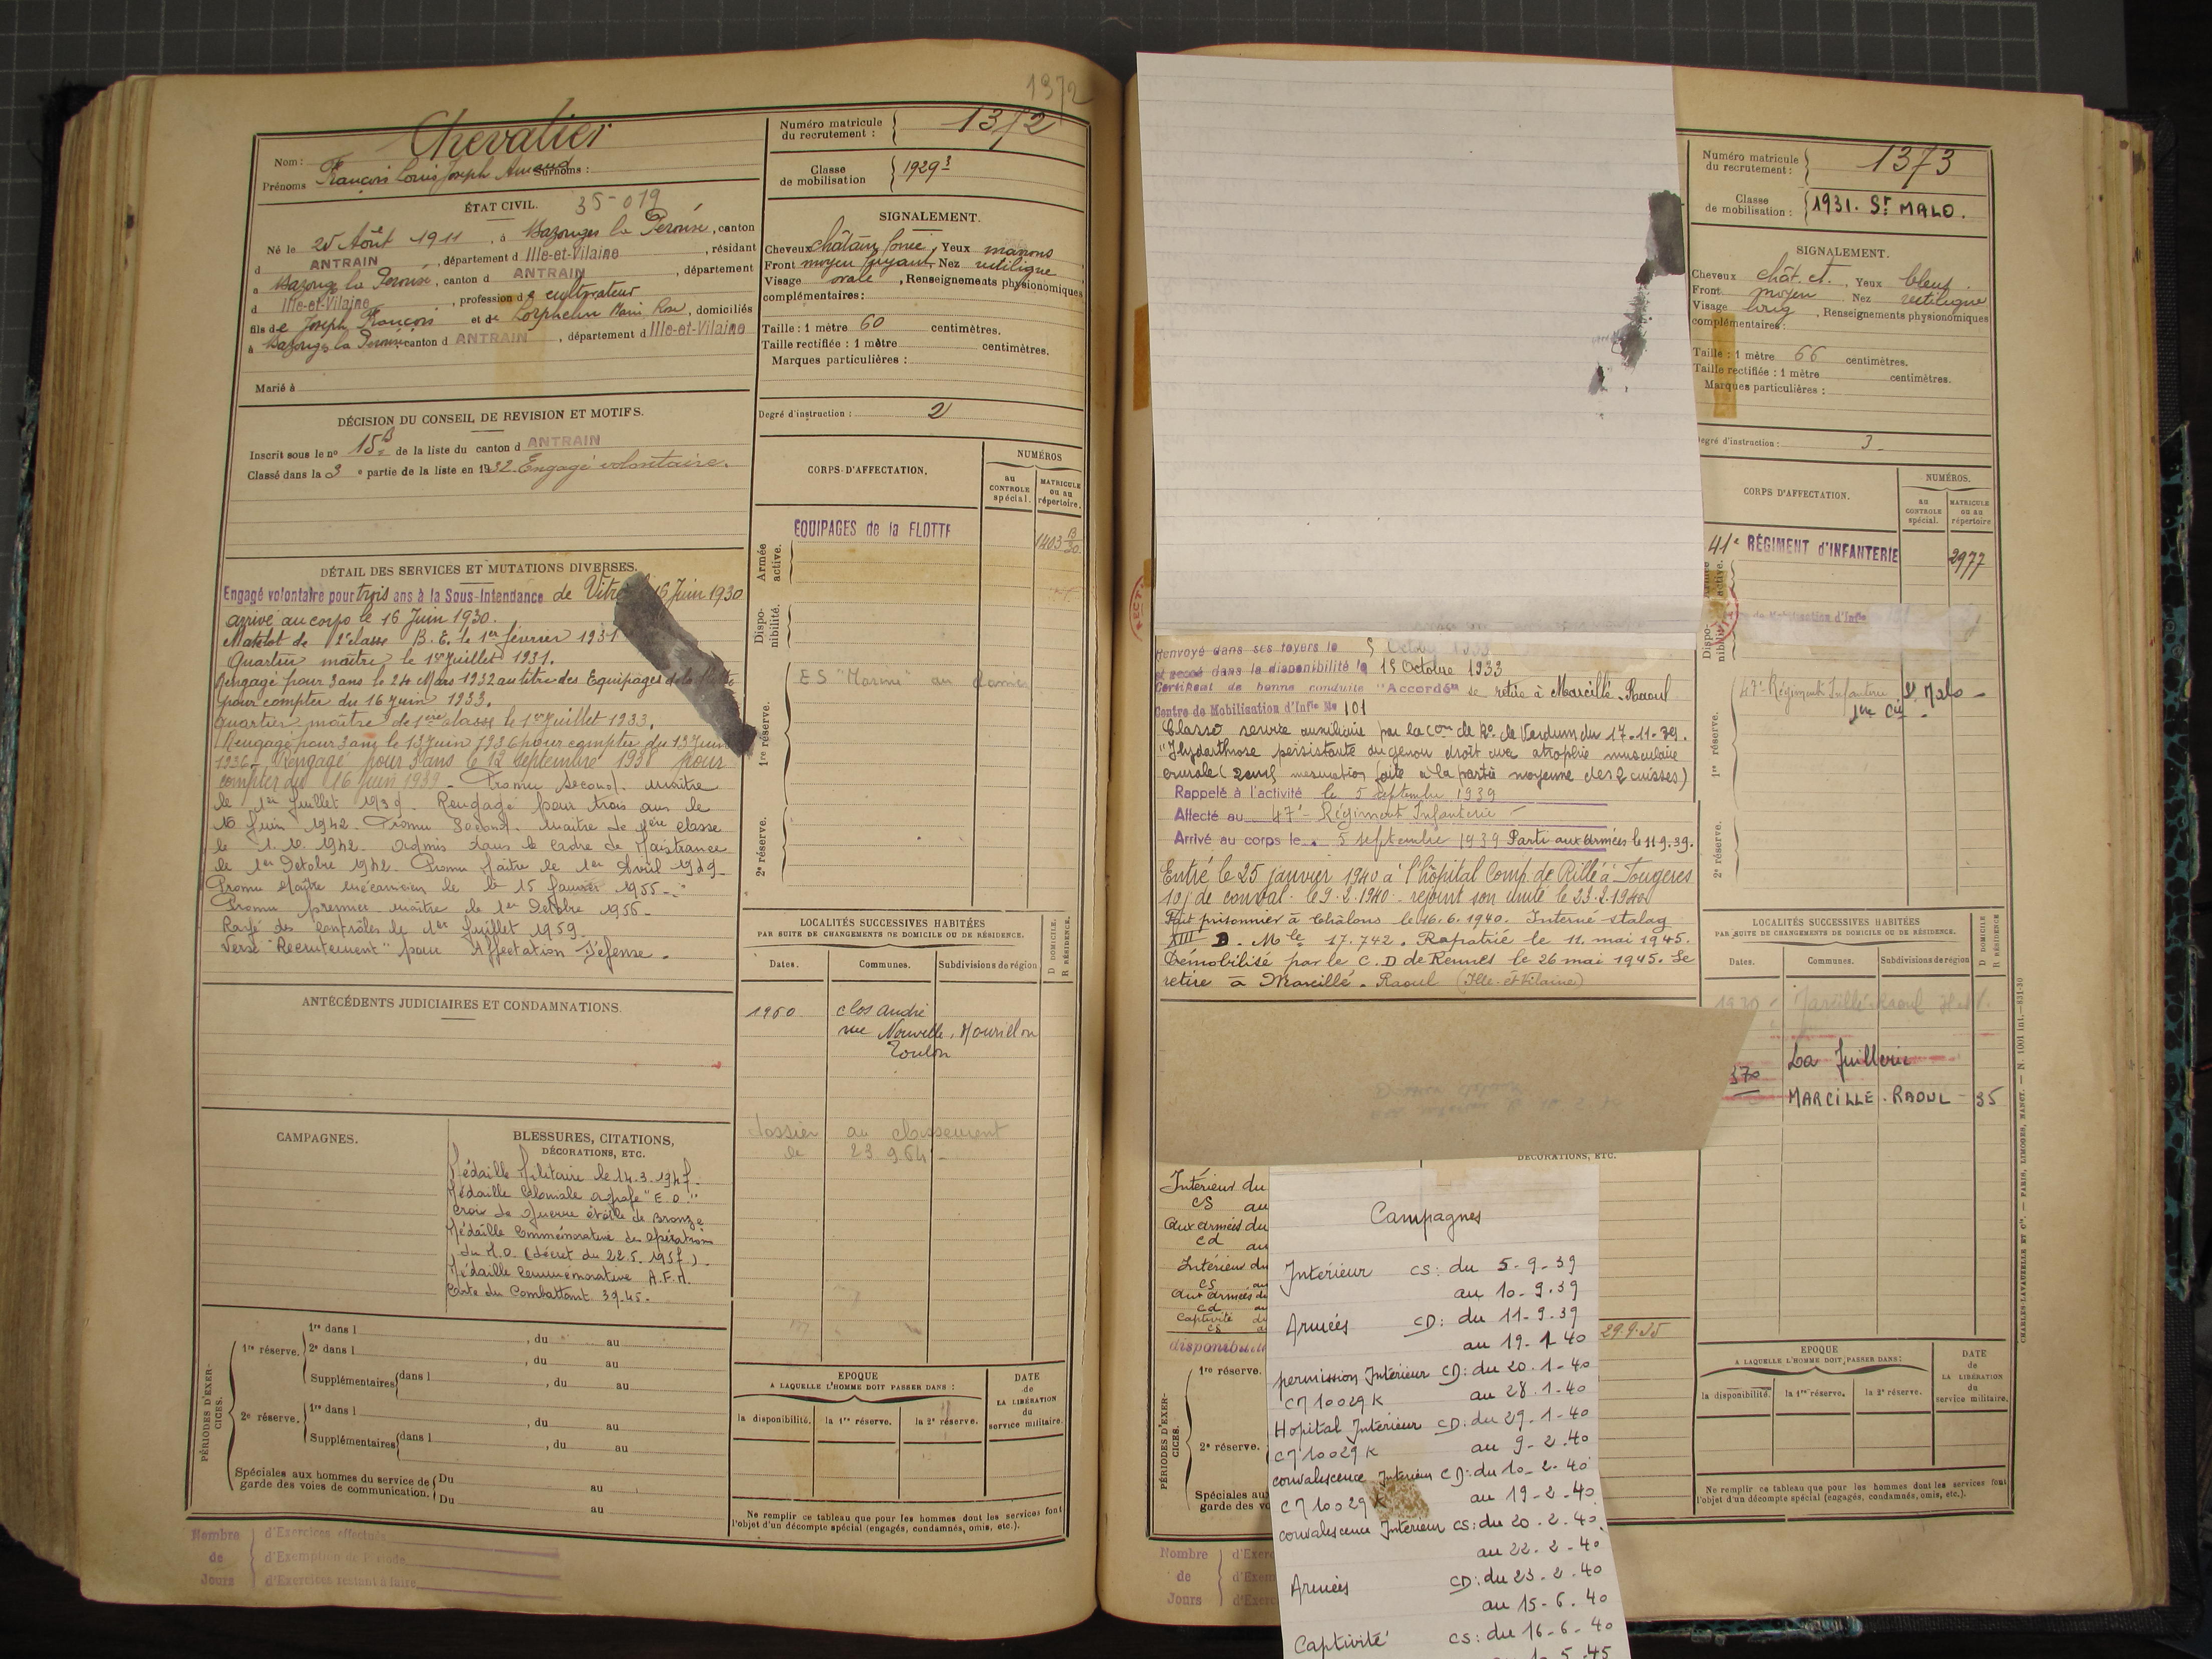 1372
Chevalier
Nom :
Prénoms François Louis Joseph Surnoms :
ÉTAT CIVIL. 35-019
Né le 25 Août 1911, à Bazouges la Pérouse, canton
d ANTRAIN, département d Ille-et-Vilaine, résidant
à Bazouges la Pérouse, canton d ANTRAIN, département
d Ille-et-Vilaine, profession de cultivateur
fils de Joseph François et de Lorphelin Marie Rose, domiciliés
à Bazouges la Pérouse canton d ANTRAIN, département d Ille-et-Vilaine
Marié à
DÉCISION DU CONSEIL DE REVISION ET MOTIFS.
Inscrit sous le nº 15B de la liste du canton d ANTRAIN
Classé dans la 3 e partie de la liste en 1932. Engagé volontaire.
DÉTAIL DES SERVICES ET MUTATIONS DIVERSES.
Engagé volontaire pour trois ans à la Sous-Intendance de Vitré 16 Juin 1930
arrivé au corps le 16 Juin 1930.
Matelot de 2e classe B.E. le 1er février 1931
Quartier maître le 1er Juillet 1931.
Rengagé pour 3 ans le 24 Mars 1932 au titre des Equipages de la Flotte
pour compter du 16 Juin 1933.
Quartier maître de 1ère classe le 1er Juillet 1933.
Rengagé pour 3 ans le 13 Juin 1936 pour compter du 13 Juin
1936 - Rengagé pour 3 ans le 12 Septembre 1938 pour
compter du 16 Juin 1939 - Promu Second maître
le 1er Juillet 1939. Rengagé pour trois ans le
16 Juin 1942. Promu Second maître de 1ère classe
le 1.10.1942. Admis dans le cadre de Maistrance
le 1er Octobre 1942. Promu Maître le 1er Avril 1949.
Promu Maître mécanicien le 15 Janvier 1955.
Promu premier maître le 1er Octobre 1956.
Rayé des contrôles le 1er Juillet 1959.
Versé "Recrutement" pour Affectation Défense.
ANTÉCÉDENTS JUDICIAIRES ET CONDAMNATIONS.
CAMPAGNES.
BLESSURES, CITATIONS,
DÉCORATIONS, ETC.
Médaille Militaire le 14.3.1947.
Médaille Coloniale agrafe "E.O."
Croix de Guerre étoile de Bronze
Médaille Commémorative des opérations
du M.O. (décret du 22.5.1957).
Médaille Commémorative A.F.N.
Carte du Combattant 39-45.
PÉRIODES D'EXERCICES.
1re réserve.
1re dans l , du au
2e dans l , du au
Supplémentaires dans l , du au
2e réserve.
1re dans l , du au
Supplémentaires dans l , du au
Spéciales aux hommes du service de garde des voies de communication.
Du au
Du au
Nombre de Jours
d'Exercices effectués
d'Exemption de Période
d'Exercices restant à faire
Numéro matricule du recrutement : 1372
Classe de mobilisation 1929 3
SIGNALEMENT.
Cheveux châtain foncé, Yeux marrons
Front moyen fuyant, Nez rectiligne
Visage ovale, Renseignements physionomiques
complémentaires :
Taille : 1 mètre 60 centimètres.
Taille rectifiée : 1 mètre centimètres.
Marques particulières :
Degré d'instruction : 2
CORPS D'AFFECTATION.
NUMÉROS
au CONTROLE spécial.
MATRICULE ou au répertoire.
Armée active.
ÉQUIPAGES de la FLOTTE
1403 B/30
Disponibilité.
1re réserve.
ES "Marine" au
2e réserve.
LOCALITÉS SUCCESSIVES HABITÉES
PAR SUITE DE CHANGEMENTS DE DOMICILE OU DE RÉSIDENCE.
D DOMICILE. R RÉSIDENCE.
Dates. Communes. Subdivisions de région
1960 clos André
rue Nouvelle, Mourillon
Toulon
dossier au classement
le 23.9.64
EPOQUE
A LAQUELLE L'HOMME DOIT PASSER DANS :
la disponibilité. la 1re réserve. la 2e réserve.
DATE de LA LIBÉRATION du service militaire.
Ne remplir ce tableau que pour les hommes dont les services font
l'objet d'un décompte spécial (engagés, condamnés, omis, etc.).
Renvoyé dans ses foyers le 5 Octobre 1933
et passé dans la disponibilité le 15 Octobre 1933
Certificat de bonne conduite "Accordé" se retire à Marcillé-Raoul
Centre de Mobilisation d'Infie No 101
Classé service auxiliaire par la Con de Re de Verdun du 17.11.39.
"Hydarthrose persistante du genou droit avec atrophie musculaire
crurale (2cm½ mesuration faite à la partie moyenne des 2 cuisses)
Rappelé à l'activité le 5 septembre 1939
Affecté au 47e Régiment Infanterie
Arrivé au corps le 5 septembre 1939 Parti aux armées le 11.9.39.
Entré le 25 janvier 1940 à l'hôpital Comp. de Rillé à Fougères
10j de conval. le 9.2.1940. rejoint son unité le 23.2.1940.
Fait prisonnier à Châlons le 16.6.1940. Interné stalag
XIII D. Mle 17.742. Rapatrié le 11. mai 1945.
Démobilisé par le C.D de Rennes le 26 mai 1945. Se
retire à Marcillé. Raoul (Ille-et-Vilaine)
DÉCORATIONS, ETC.
Intérieur du
CS au
aux armées du
cd au
Intérieur du
CS au
aux armées du
cd au
Captivité du
CS
29.9.35
disponibilité
PÉRIODES D'EXERCICES.
1re réserve.
2e réserve.
Spéciales aux
garde des vo
Nombre de Jours
d'Exerc
d'Exem
d'Exerc
Campagnes
Intérieur CS: du 5-9-39
au 10-9-39
Armées CD: du 11-9-39
au 19-1-40
permission Intérieur CD: du 20-1-40
C710029K au 28-1-40
Hopital Intérieur CD: du 29-1-40
C710029K au 9-2-40
convalescence Intérieur CD: du 10-2-40
C710029K au 19-2-40
convalescence Intérieur CS: du 20-2-40
au 22-2-40
Armées CD: du 23-2-40
au 15-6-40
Captivité CS: du 16-6-40
Numéro matricule du recrutement : 1373
Classe de mobilisation : 1931. St MALO.
SIGNALEMENT.
Cheveux chât. ct., Yeux bleus
Front moyen Nez rectiligne
Visage long, Renseignements physionomiques
complémentaires :
Taille : 1 mètre 66 centimètres.
Taille rectifiée : 1 mètre centimètres.
Marques particulières :
Degré d'instruction : 3
CORPS D'AFFECTATION.
NUMÉROS.
au CONTROLE spécial.
MATRICULE ou au répertoire
41e RÉGIMENT d'INFANTERIE 2977
de Mobilisation d'Infie
1re réserve.
47e Régiment Infanterie St Malo
2e réserve.
LOCALITÉS SUCCESSIVES HABITÉES
PAR SUITE DE CHANGEMENTS DE DOMICILE OU DE RÉSIDENCE.
D DOMICILE R RÉSIDENCE
Dates. Communes. Subdivisions de région
Marcillé-Raoul
La Juillerie
MARCILLE-RAOUL - 35
EPOQUE
A LAQUELLE L'HOMME DOIT PASSER DANS :
la disponibilité. la 1re réserve. la 2e réserve.
DATE de LA LIBÉRATION du service militaire.
Ne remplir ce tableau que pour les hommes dont les services font
l'objet d'un décompte spécial (engagés, condamnés, omis, etc.).
CHARLES-LAVAUZELLE ET Cie. — PARIS, LIMOGES, NANCY. — N. 1001 ini.—831-30